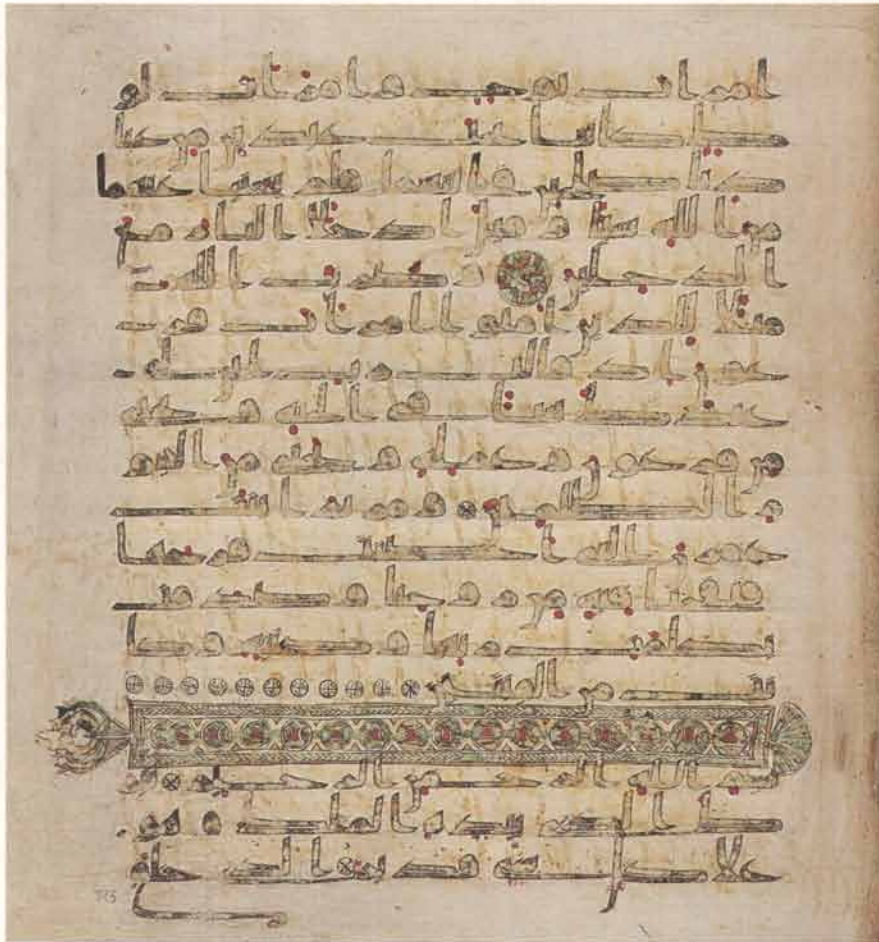 امرات نوح وامرات لو
ط كانتا تحت عبدين من عبا
دنا صلحين فخانتاهما فلم يغنيا عنهما
من الله شيا وقيل ادخلا النار مع
الدخلين وضرب الله
مثلا للذين امنوا امرات فر
عون اذ قالت رب ابن لي
عندك بيتا في الجنة ونجني
من فرعون وعمله ونجني من القو
م الظلمين ومريم ابنت
عمرن التي احصنت فرجها
فنفخنا فيه من روحنا وصدقت
بكلمت ربها وكتبه وكانت
من القنتين
بسم الله الرحمن الرحيم
تبرك الذي بيده الملك وهو
على كل شي قدير الذي خلق